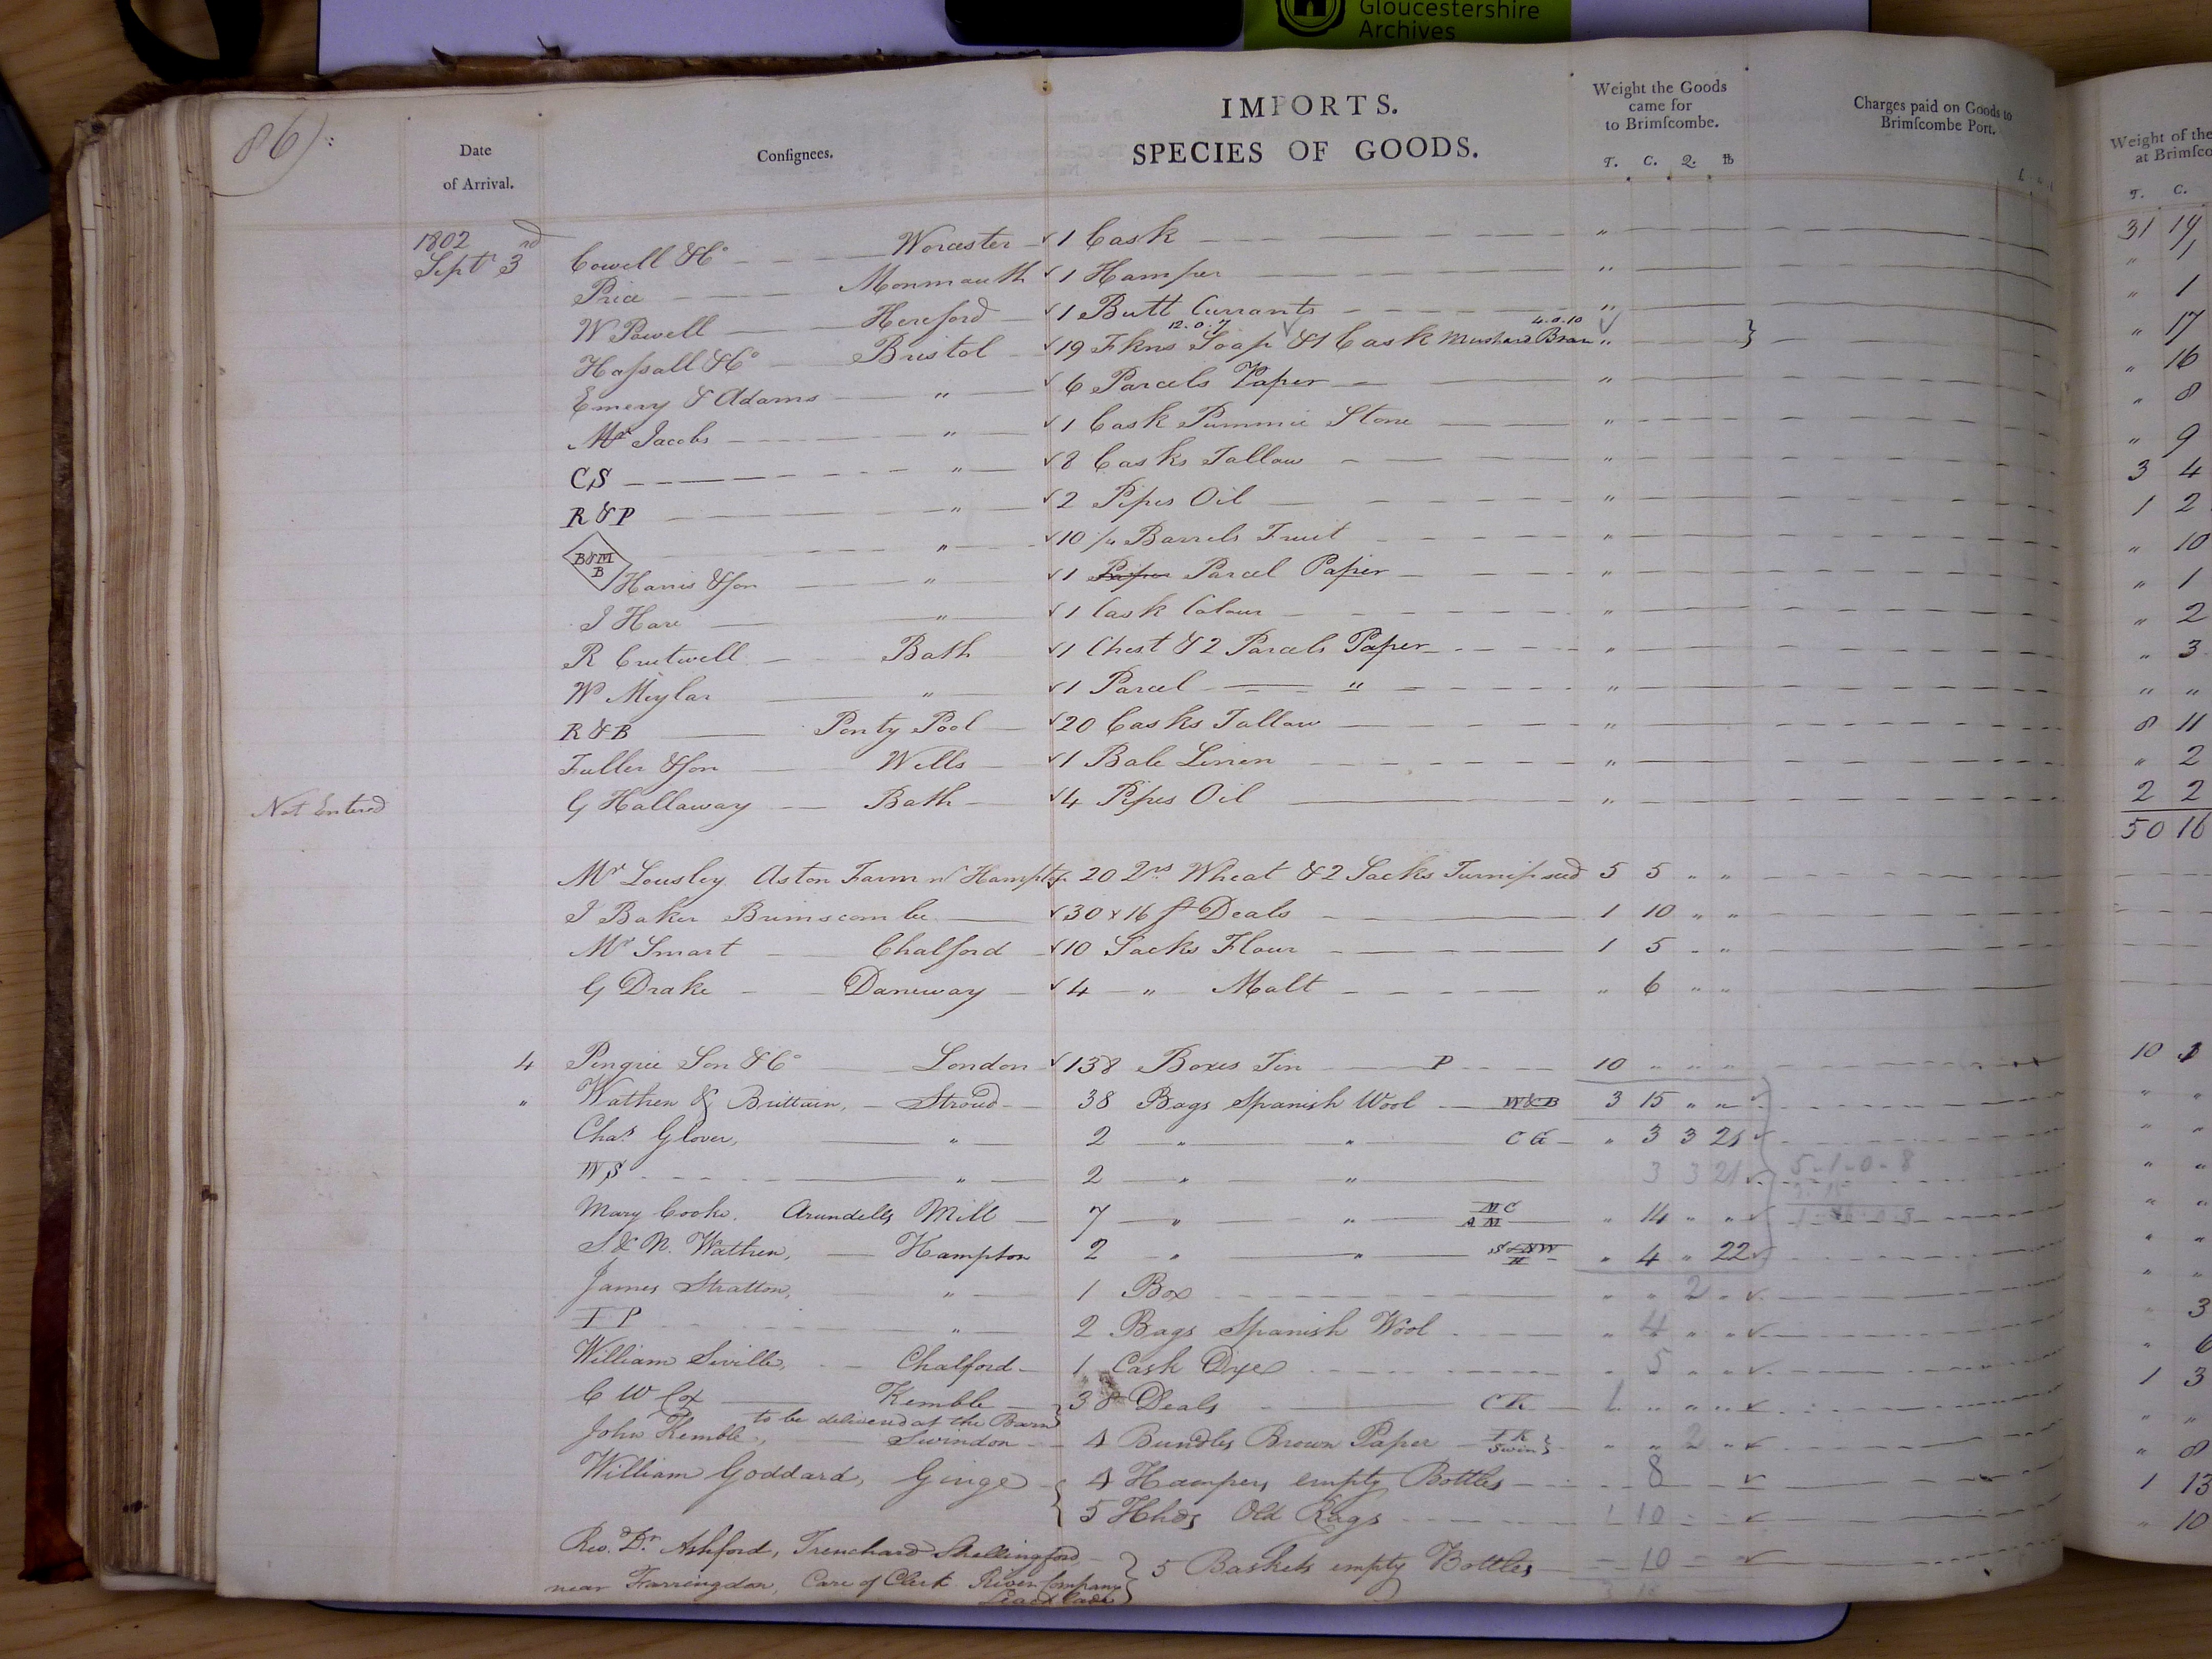 Gloucestershire
Archives
86):
Date
of Arrival.
Consignees.
IMPORTS.
SPECIES OF GOODS.
Weight the Goods
came for
to Brimscombe.
T. C. Q. lb
Charges paid on Goods to
Brimscombe Port.
Weight of the
at Brimsco
T. C.
1802
Sept 3rd Cowell & Co Worcester 1 Cask " 31 19
Price Monmouth 1 Hamper " " 1
W Powell Hereford 1 Butt Currants " " 1
12.0.7 4.0.10
Hassall & Co Bristol 19 Fkns Soap & 1 Cask Mustard Bran " " 17
Emery & Adams " 6 Parcels Paper " " 16
Mr Jacobs " 1 Cask Pummie Stone " " 8
CS " 8 Casks Tallow " " 9
R & P " 2 Pipes Oil " 3 4
B&M B " 10 1/4 Barrels Fruit " 1 2
Harris & Son " 1 Paper Parcel Paper " " 10
I Hare " 1 Cask Colour " " 1
R Crutwell Bath 1 Chest & 2 Parcels Paper " " 2
W Meylar " 1 Parcel " " " 3
R & B Ponty Pool 20 Casks Tallow " " "
Fuller & Son Wells 1 Bale Linen " 8 11
Not Entered G Hallaway Bath 4 Pipes Oil " " 2
2 2
50 16
Mr Lousley Aston Farm nr Hampton 20 Qrs Wheat & 2 Sacks Turnip seed 5 5 " "
I Baker Brimscombe 30 x 16 ft Deals 1 10 " "
Mr Smart Chalford 10 Sacks Flour 1 5 " "
G Drake Daneway 4 " Malt " 6 " "
4 Pingrie Son & Co London 138 Boxes Tin P 10 " " " 10 1
" Wathen & Brittain, Stroud 38 Bags Spanish Wool W&B 3 15 " "
Chas Glover, " 2 " " CG " 3 3 21
WS " 2 " " 3 3 21 5-1-0-8
Mary Cooke, Arundells Mill 7 " " MC AM " 14 " "
S. & N. Wathen, Hampton 2 " " S&NW H " 4 " 22
James Stratton, " 1 Box " " 2 "
I P " 2 Bags Spanish Wool " 4 " " 3
William Seville, Chalford 1 Cask Dye " 5 " " 6
C W Cox Kemble 38 Deals CK 1 " " " 1 3
to be delivered at the Barn
John Kemble, Swindon 4 Bundles Brown Paper I K Swin " " 2 "
William Goddard, Ginge 4 Hampers empty Bottles 8 " 8
5 Hhds Old Rags 1 10 1 13
Rev. Dr. Ashford, Trenchard Shellingford 5 Baskets empty Bottles 10 " 10
near Farringdon, Care of Clerk River Company
Leachlade